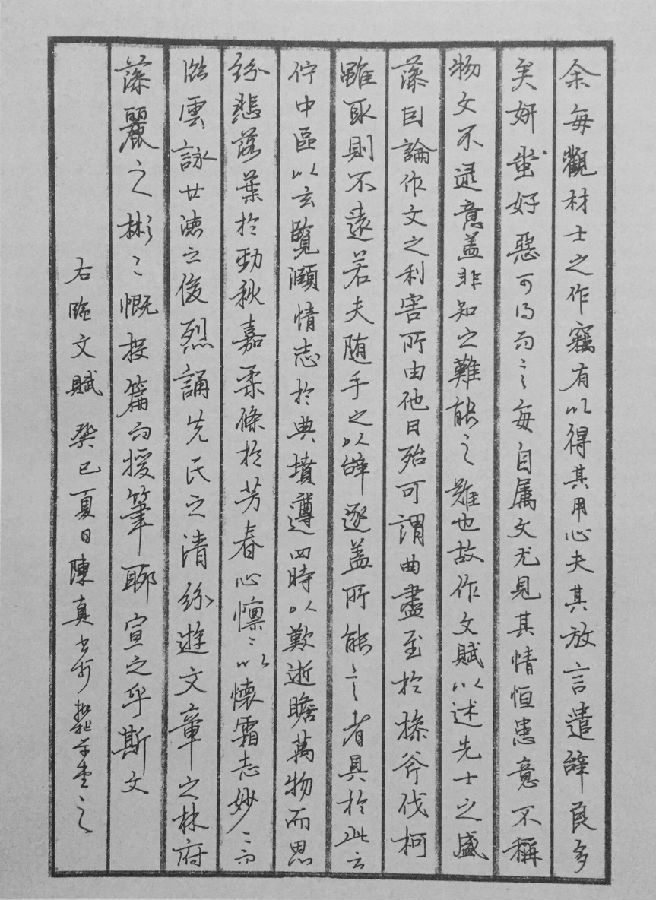 余每觀材士之作竊有以得其用心夫其放言遣辭良多
矣妍蚩好惡可得而言每自属文尤見其情恒患意不稱
物文不逮意盖非知之難能之難也故作文賦以述先士之盛
藻因論作文之利害所由他日殆可謂曲盡至於操斧伐柯
雖取則不遠若夫随手之以辭逐盖所能言者具於此云
佇中區以玄覽頤情志於典墳遵四時以歎逝瞻萬物而思
紛悲落葉於勁秋嘉柔條於芳春心懍〻以懷霜志妙〻而
臨雲詠世德之俊烈誦先民之清芬遊文章之林府
藻麗之彬〻慨投篇而援筆聊宣之乎斯文
右臨文賦 癸巳夏日陳真